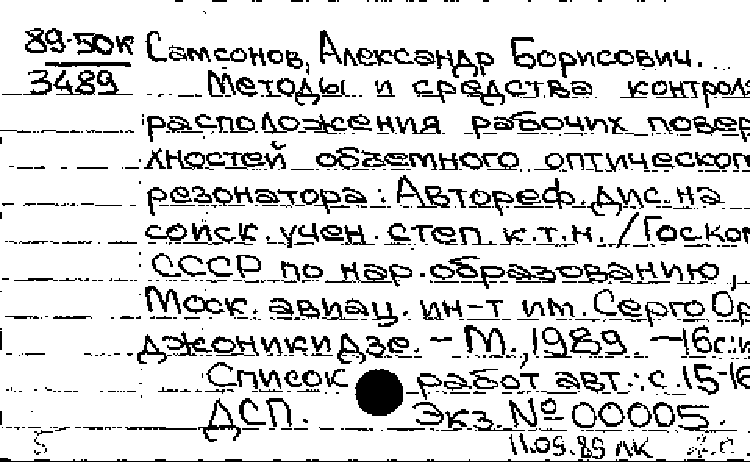 89-50к Самсонов, Александр Борисович.
3489 Методы и средства контроля
расположения рабочих повер
хностей объемного оптическог
резонатора: Автореф. дис. на
соиск. учен. степ. к.т.н. / Госком
СССР по нар. образованию,
Моск. авиац. ин-т им. Серго Ор
джоникидзе. - М., 1989 - 16с:и
Список работ авт.: с. 15-16
ДСП. Экз. № 00005.
11.09.89 лк